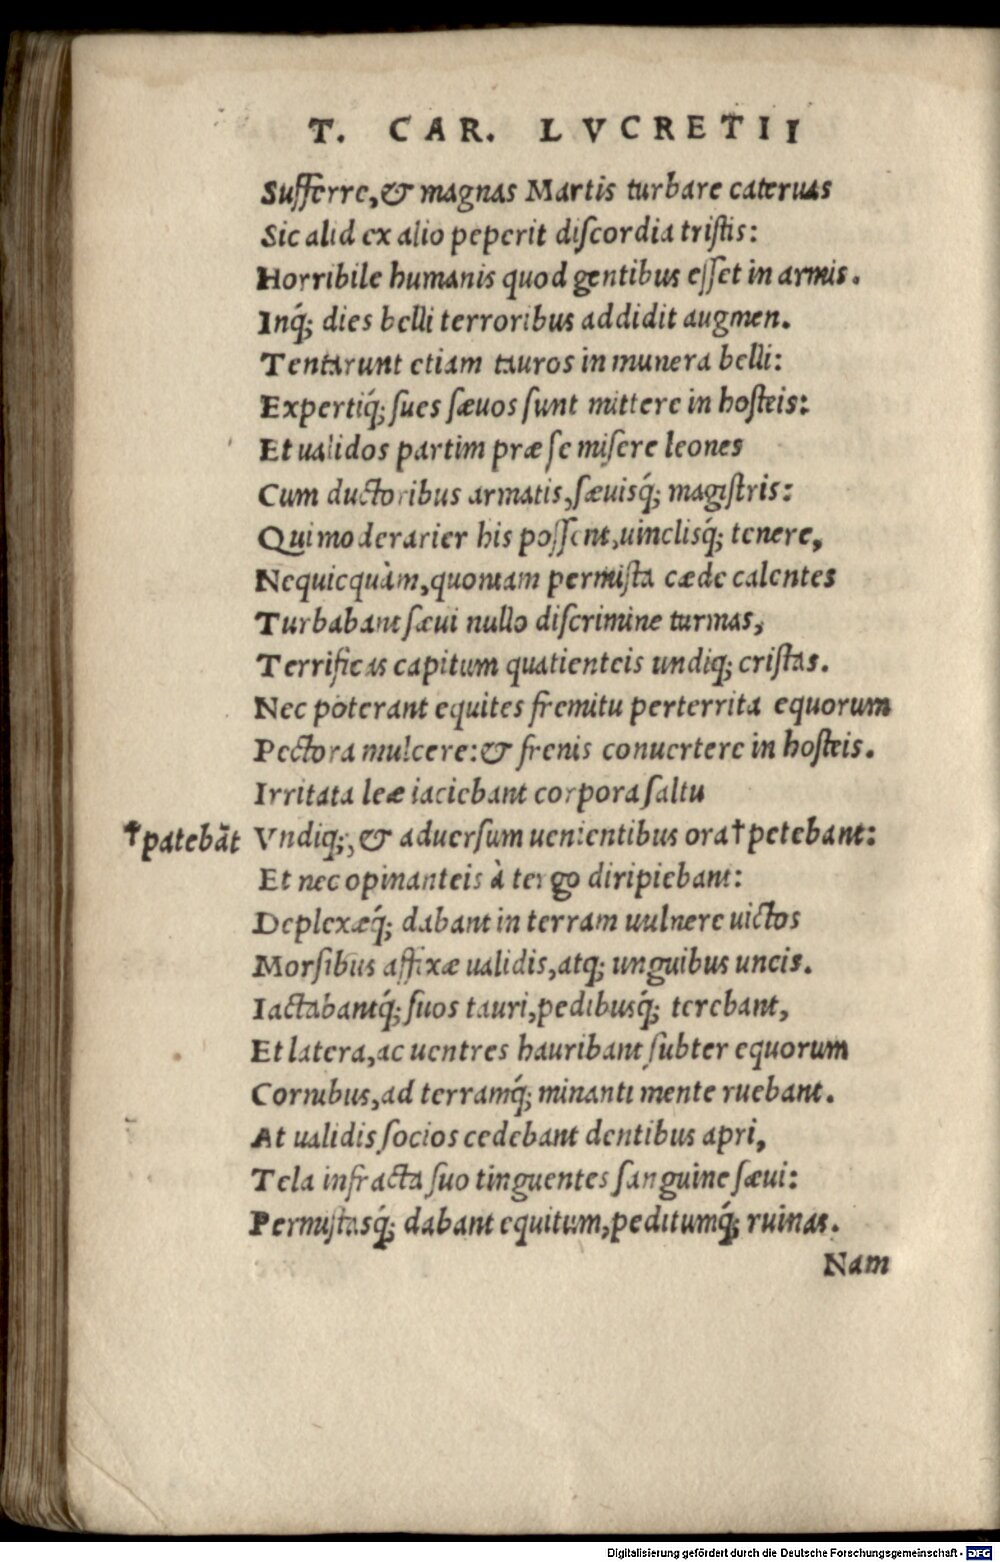 T. CAR. LVCRETII
Sufferre,& magnas Martis turbare cateruas
Sic alid ex alio peperit diſcordia triſtis:
Horribile humanis quod gentibus eſſet in armis.
Inq́; dies belli terroribus addidit augmen.
Tentarunt etiam tauros in munera belli:
Expertiq́; ſues ſæuos ſunt mittere in hoſteis:
Et ualidos partim præ ſe miſere leones
Cum ductoribus armatis,ſæuisq́; magiſtris:
Qui moderarier his poſſent,uinclisq́; tenere,
Nequicquàm,quoniam permiſta cæde calentes
Turbabant ſæui nullo diſcrimine turmas,
Terrificas capitum quatienteis undiq; criſtas.
Nec poterant equites fremitu perterrita equorum
Pectora mulcere:& frenis conuertere in hoſteis.
Irritata leæ iaciebant corpora ſaltu
†patebāt Vndiq;,& aduerſum uenientibus ora†petebant:
Et nec opinanteis à tergo diripiebant:
Deplexæq́; dabant in terram uulnere uictos
Morſibus affixæ ualidis,atq; unguibus uncis.
Iactabantq́; ſuos tauri,pedibusq́; terebant,
Et latera,ac uentres hauribant ſubter equorum
Cornibus,ad terramq́; minanti mente ruebant.
At ualidis ſocios cedebant dentibus apri,
Tela infracta ſuo tinguentes ſanguine ſæui:
Permiſtasq́; dabant equitum,peditumq́; ruinas.
Nam
Digitalisierung gefördert durch die Deutsche Forschungsgemeinschaft - DFG